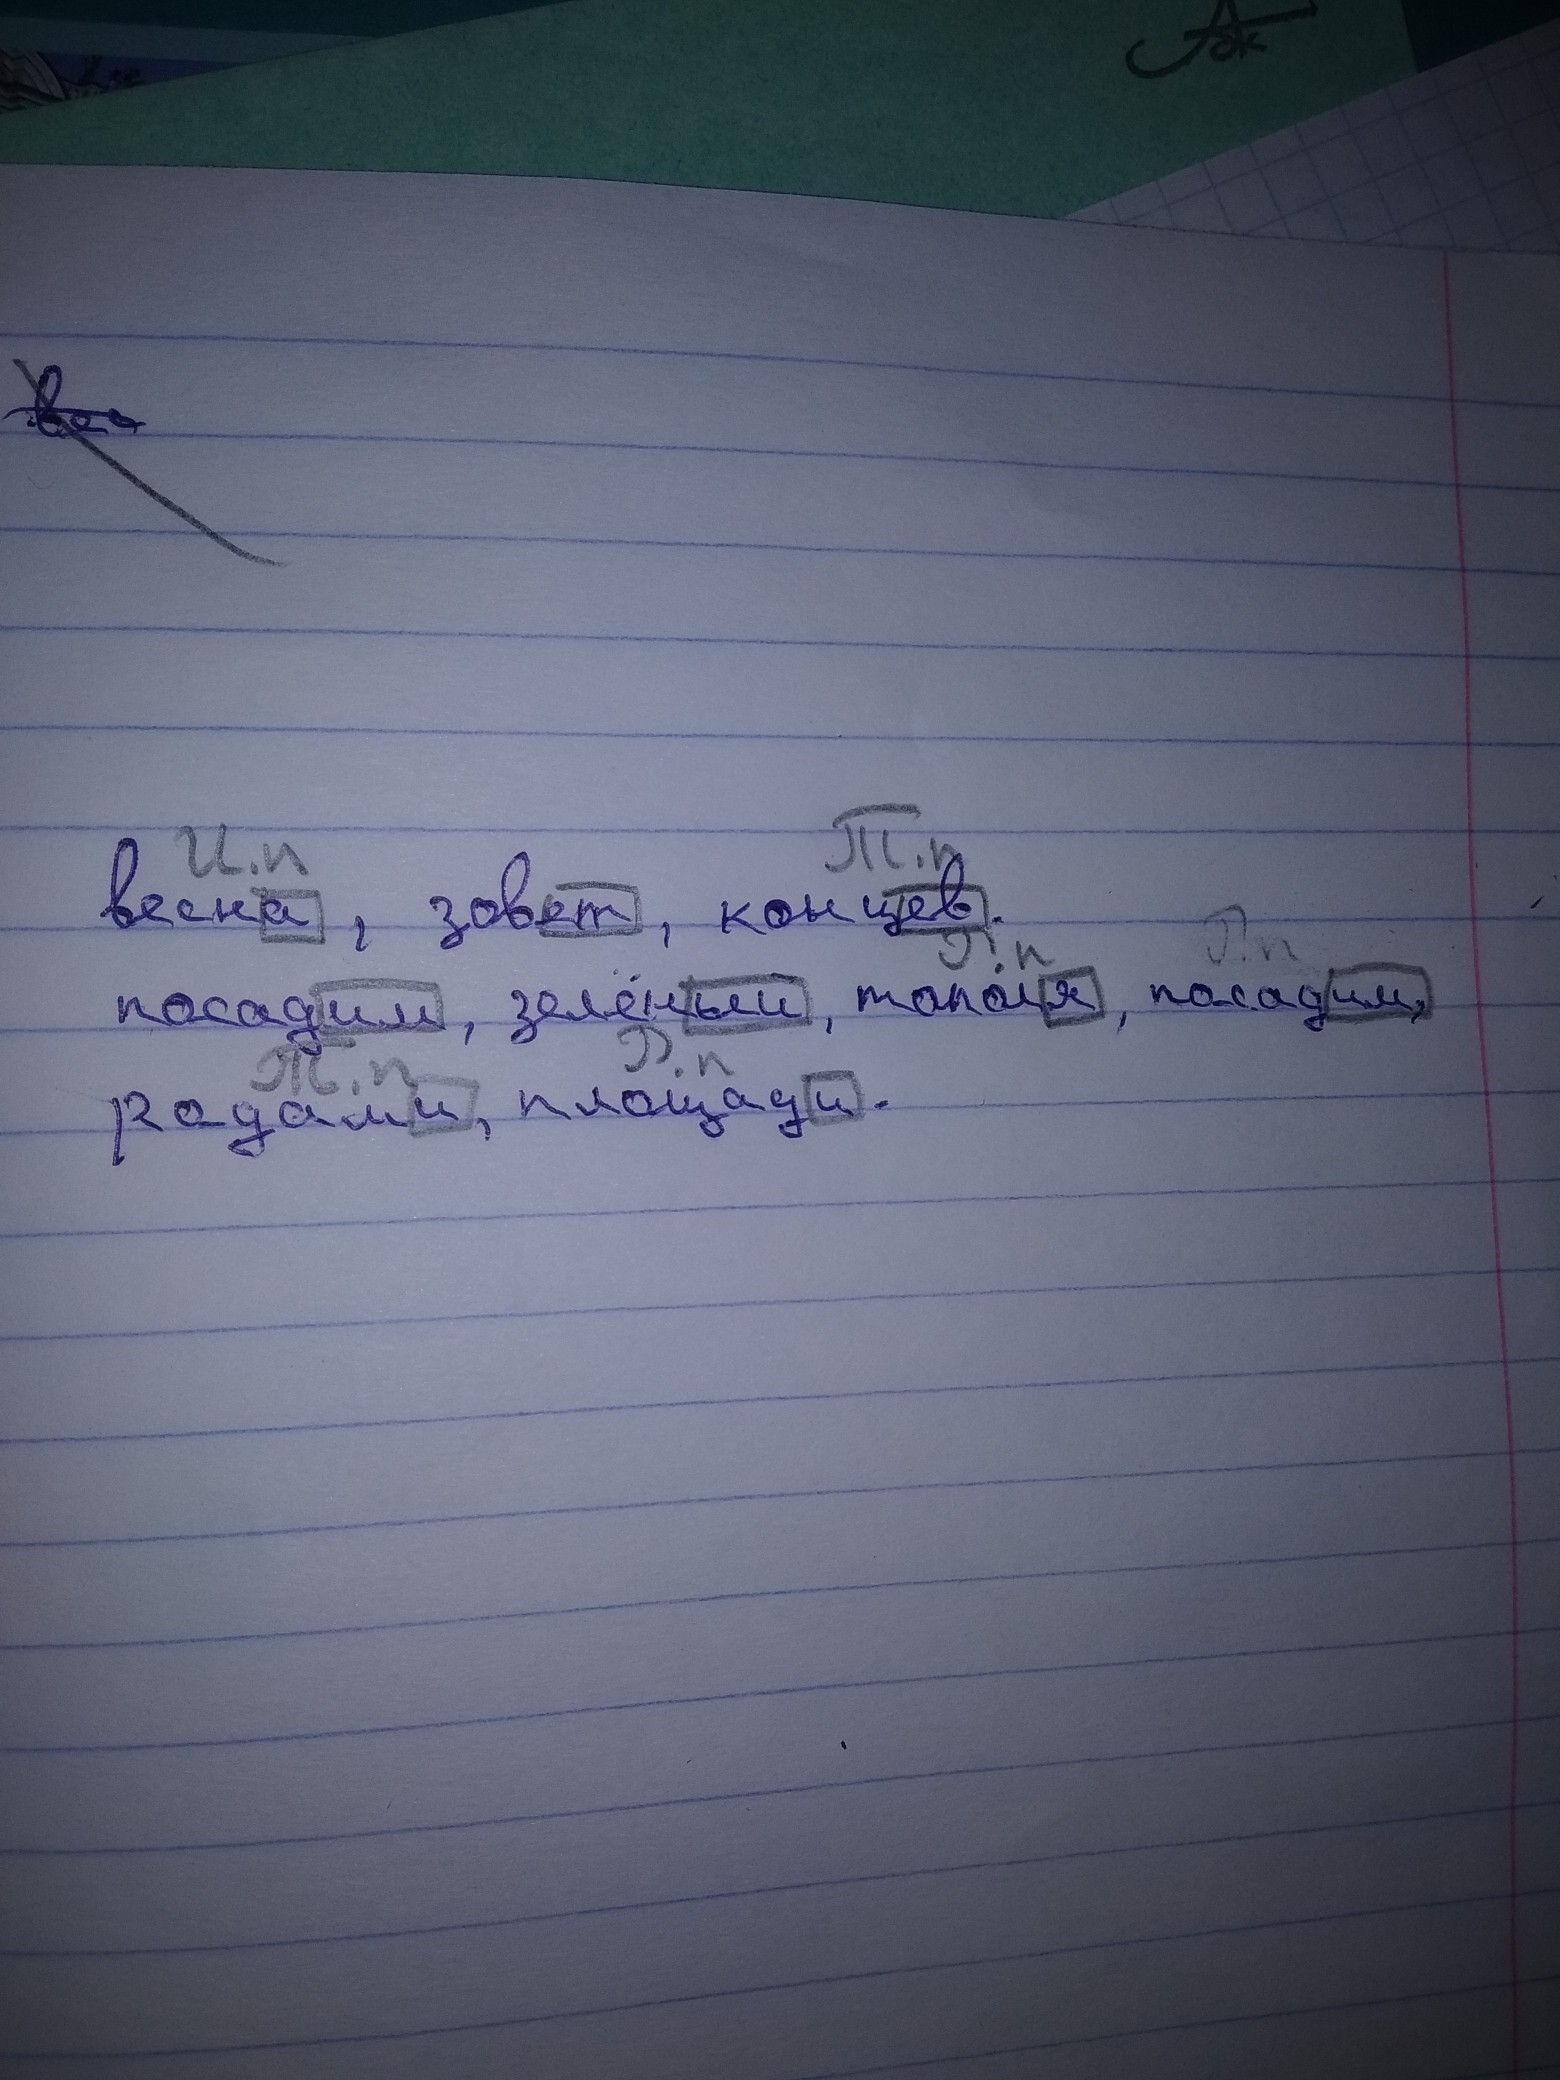 И.п Т.п
весна, зовет, концев.
Р.п Р.п
посадим, зелёный, тополя, посадим,
Т.п Р.п
радами, площади.